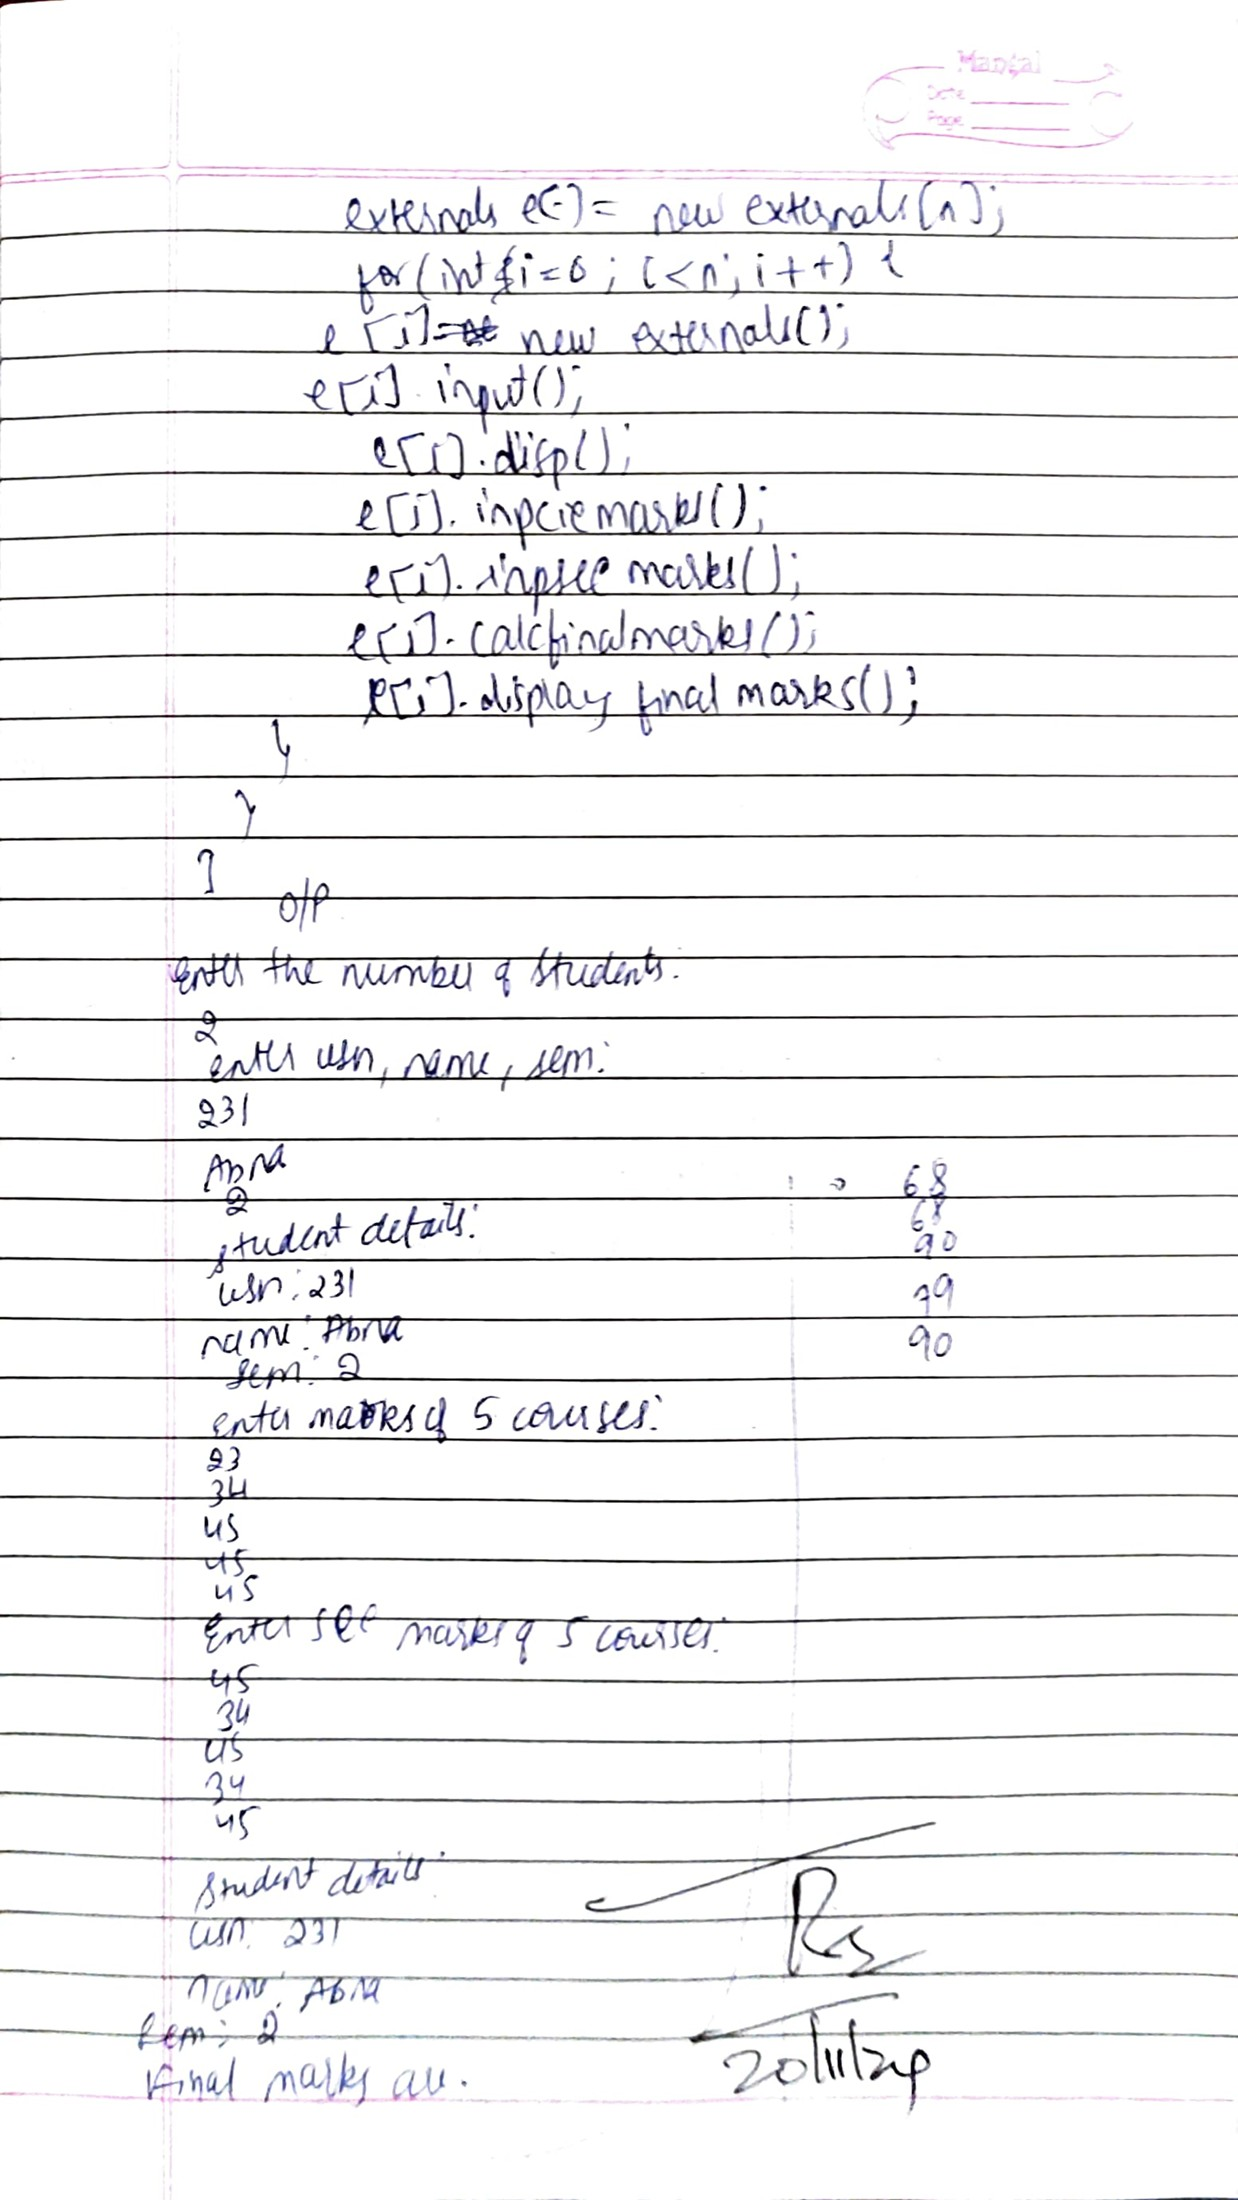 Mangal
Date
Page
externals e[-] = new externals[n];
for(int i=0; i<n; i++) {
e[i]= new externals();
e[i].input();
e[i].disp();
e[i].inpciemarks();
e[i].inpsee marks();
e[i].calcfinalmarks();
e[i].display final marks();
}
}
}
O/P
Enter the number of students:
2
enter usn, name, sem:
231
Abna
2
student details:
usn: 231
name: Abna
sem: 2
enter marks of 5 courses:
23
34
45
45
45
Enter see marks of 5 courses:
45
34
45
34
45
Student details:
usn: 231
name: Abna
Sem: 2
Final marks are.
→ 68
68
90
79
90
Rs
20/11/24